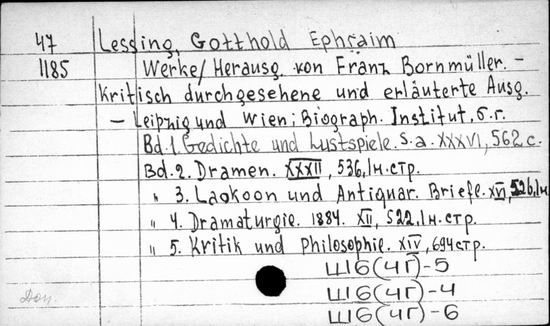 47 Lessing, Gotthold Ephraim
1185 Werke/Herausg. von Franz Bornmüller. –
Kritisch durchgesehene und erläuterte Ausg.
– Leipzig und Wien; Biograph. Institut, б.г.
Bd.1. Gedichte und Lustspiele. S.a. XXXVI, 562 c.
Bd.2. Dramen. XXXII, 536, 1н.стр.
" 3. Laokoon und Antiquar. Briefe. XVI, 526, 1н.
" 4. Dramaturgie. 1884. XII, 522, 1н.стр.
" 5. Kritik und Philosophie. XIV, 694 стр.
Ш6(4Г)-5
Ш6(4Г)-4
Ш6(4Г)-6